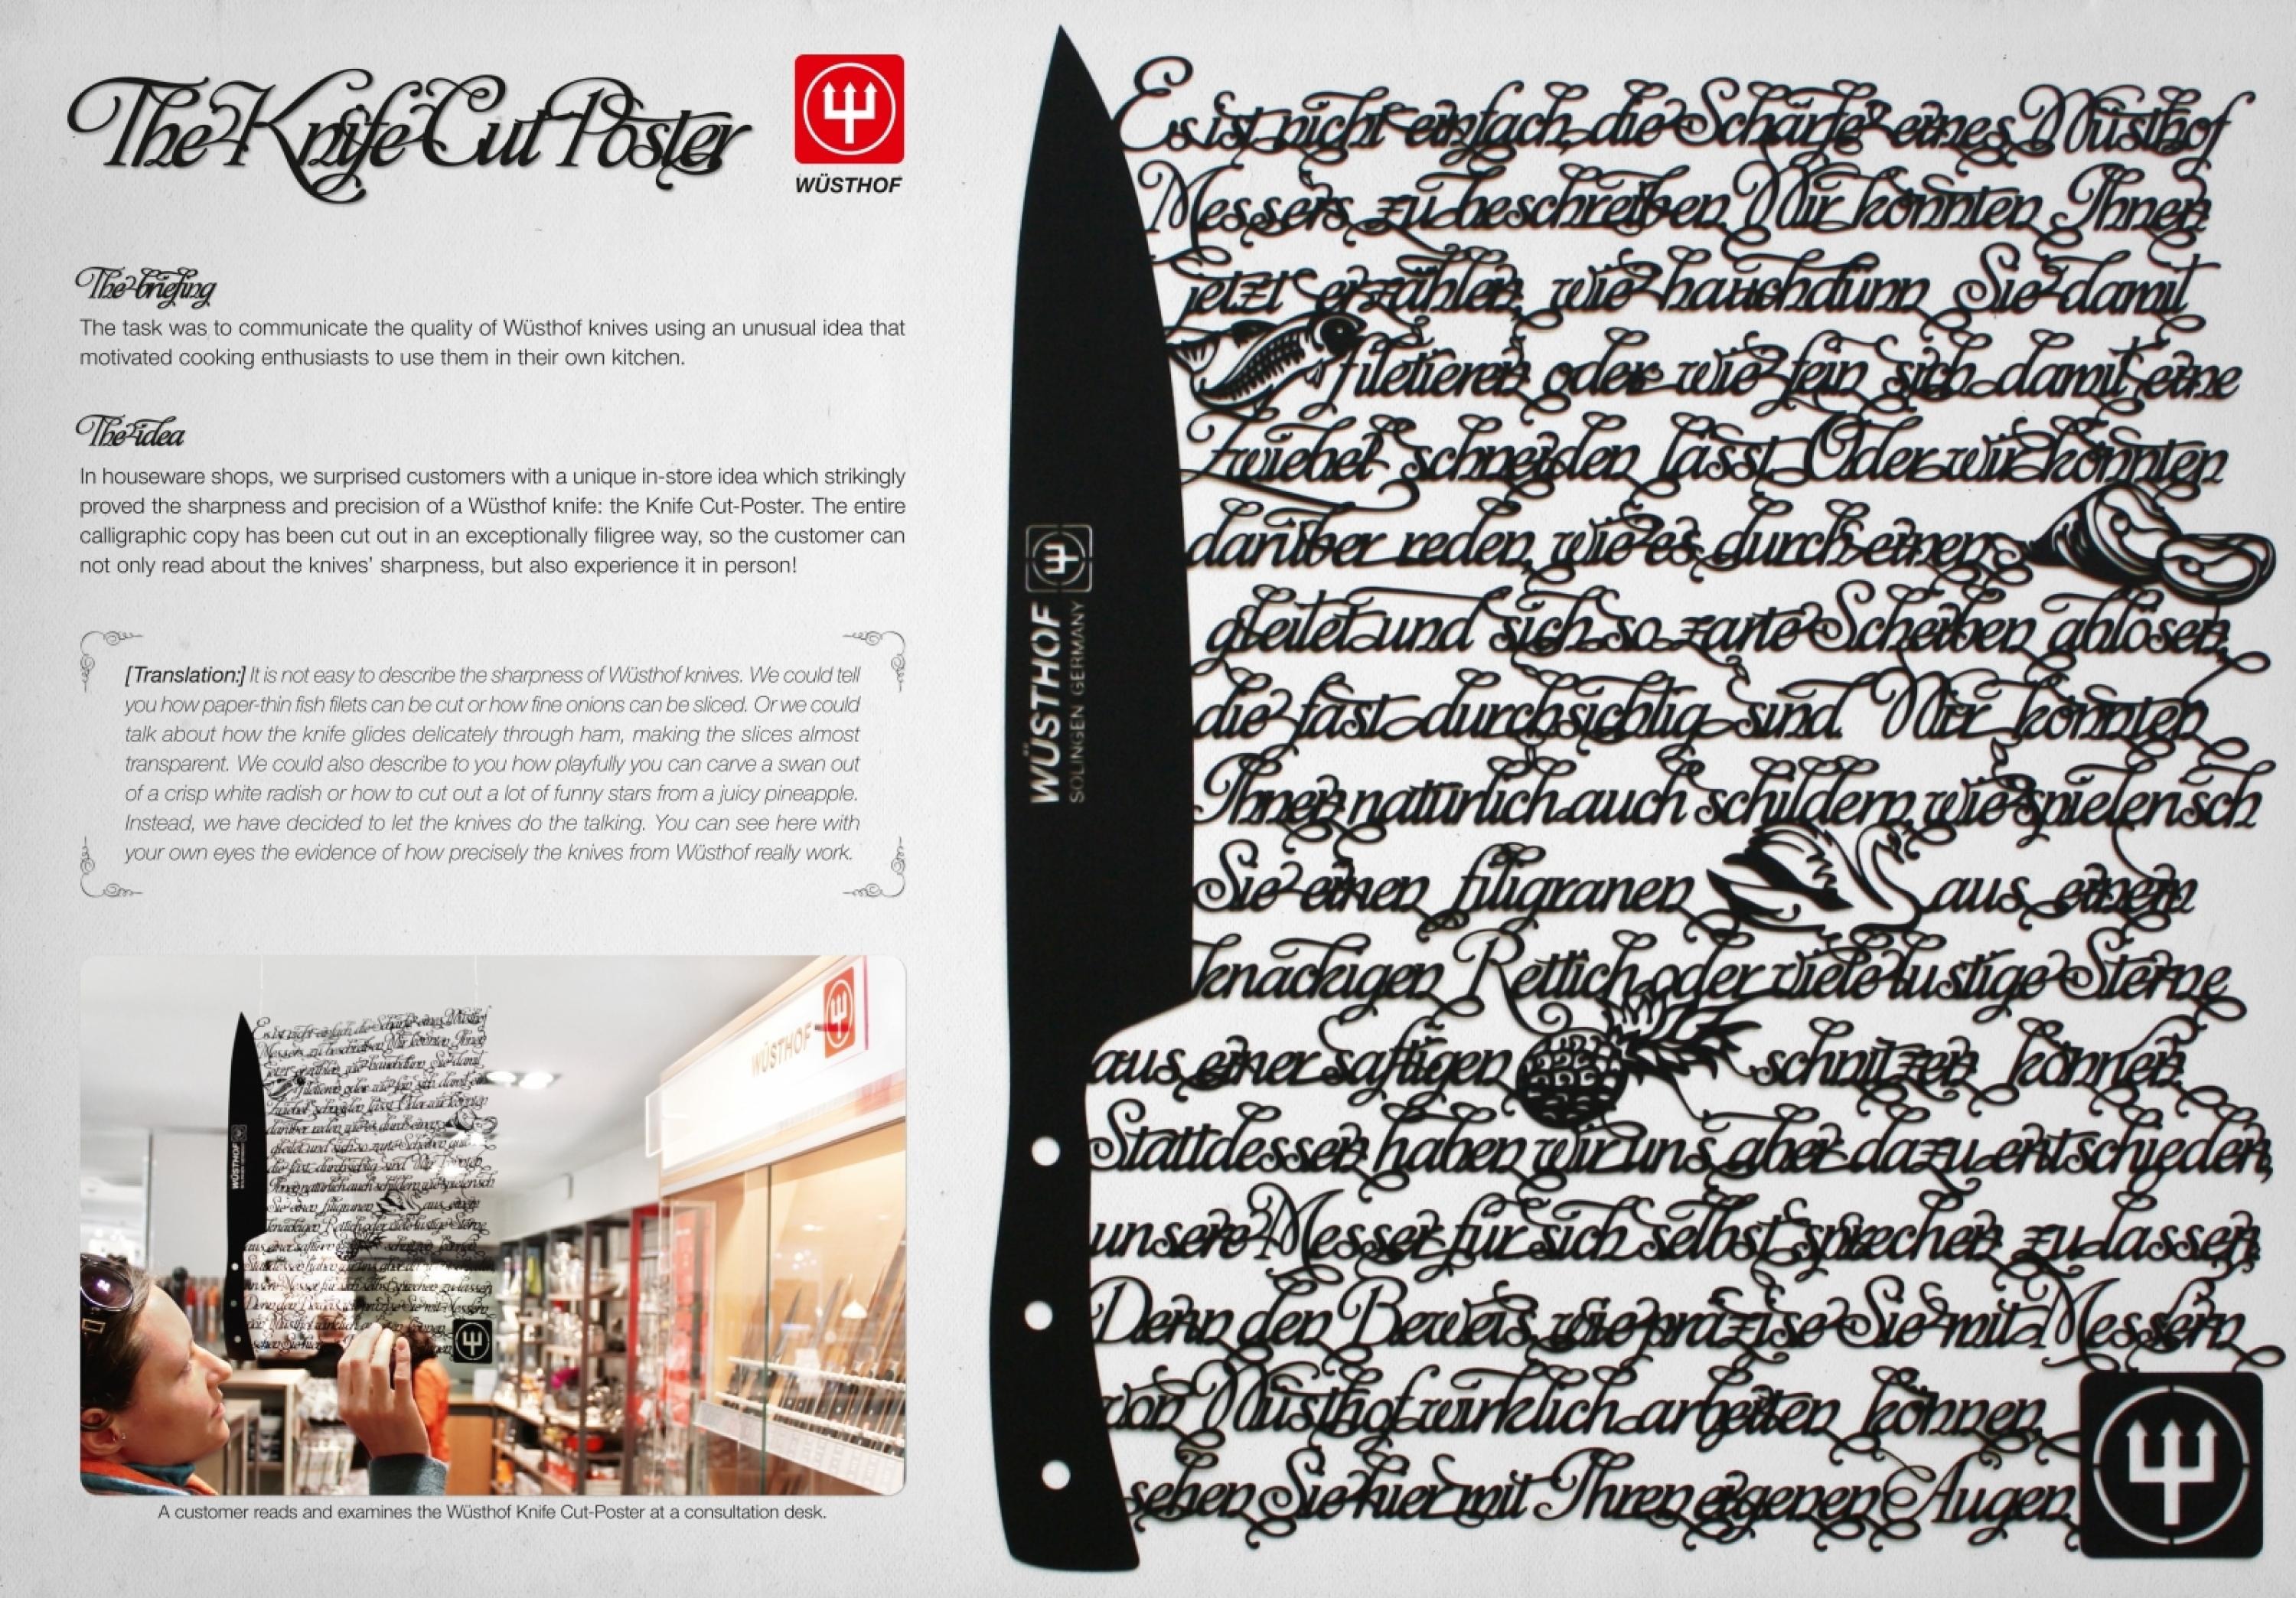 The Knife Cut Poster
WÜSTHOF
The briefing
The task was to communicate the quality of Wüsthof knives using an unusual idea that
motivated cooking enthusiasts to use them in their own kitchen.
The idea
In houseware shops, we surprised customers with a unique in-store idea which strikingly
proved the sharpness and precision of a Wüsthof knife: the Knife Cut-Poster. The entire
calligraphic copy has been cut out in an exceptionally filigree way, so the customer can
not only read about the knives’ sharpness, but also experience it in person!
[Translation:] It is not easy to describe the sharpness of Wüsthof knives. We could tell
you how paper-thin fish filets can be cut or how fine onions can be sliced. Or we could
talk about how the knife glides delicately through ham, making the slices almost
transparent. We could also describe to you how playfully you can carve a swan out
of a crisp white radish or how to cut out a lot of funny stars from a juicy pineapple.
Instead, we have decided to let the knives do the talking. You can see here with
your own eyes the evidence of how precisely the knives from Wüsthof really work.
WÜSTHOF
WÜSTHOF
A customer reads and examines the Wüsthof Knife Cut-Poster at a consultation desk.
WÜSTHOF
SOLINGEN GERMANY
Es ist nicht einfach, die Schärfe eines Wüsthof
Messers zu beschreiben. Wir könnten Ihnen
jetzt erzählen, wie hauchdünn Sie damit
filetieren oder wie fein sich damit eine
Zwiebel schneiden lässt. Oder wir könnten
darüber reden, wie es durch einen
gleitet und sich so zarte Scheiben ablösen,
die fast durchsichtig sind. Wir könnten
Ihnen natürlich auch schildern, wie spielerisch
Sie einen filigranen aus einem
knackigen Rettich oder viele lustige Sterne
aus einer saftigen schnitzen können.
Stattdessen haben wir uns aber dazu entschieden,
unsere Messer für sich selbst sprechen zu lassen.
Denn den Beweis, wie präzise Sie mit Messern
von Wüsthof wirklich arbeiten können,
sehen Sie hier mit Ihren eigenen Augen.